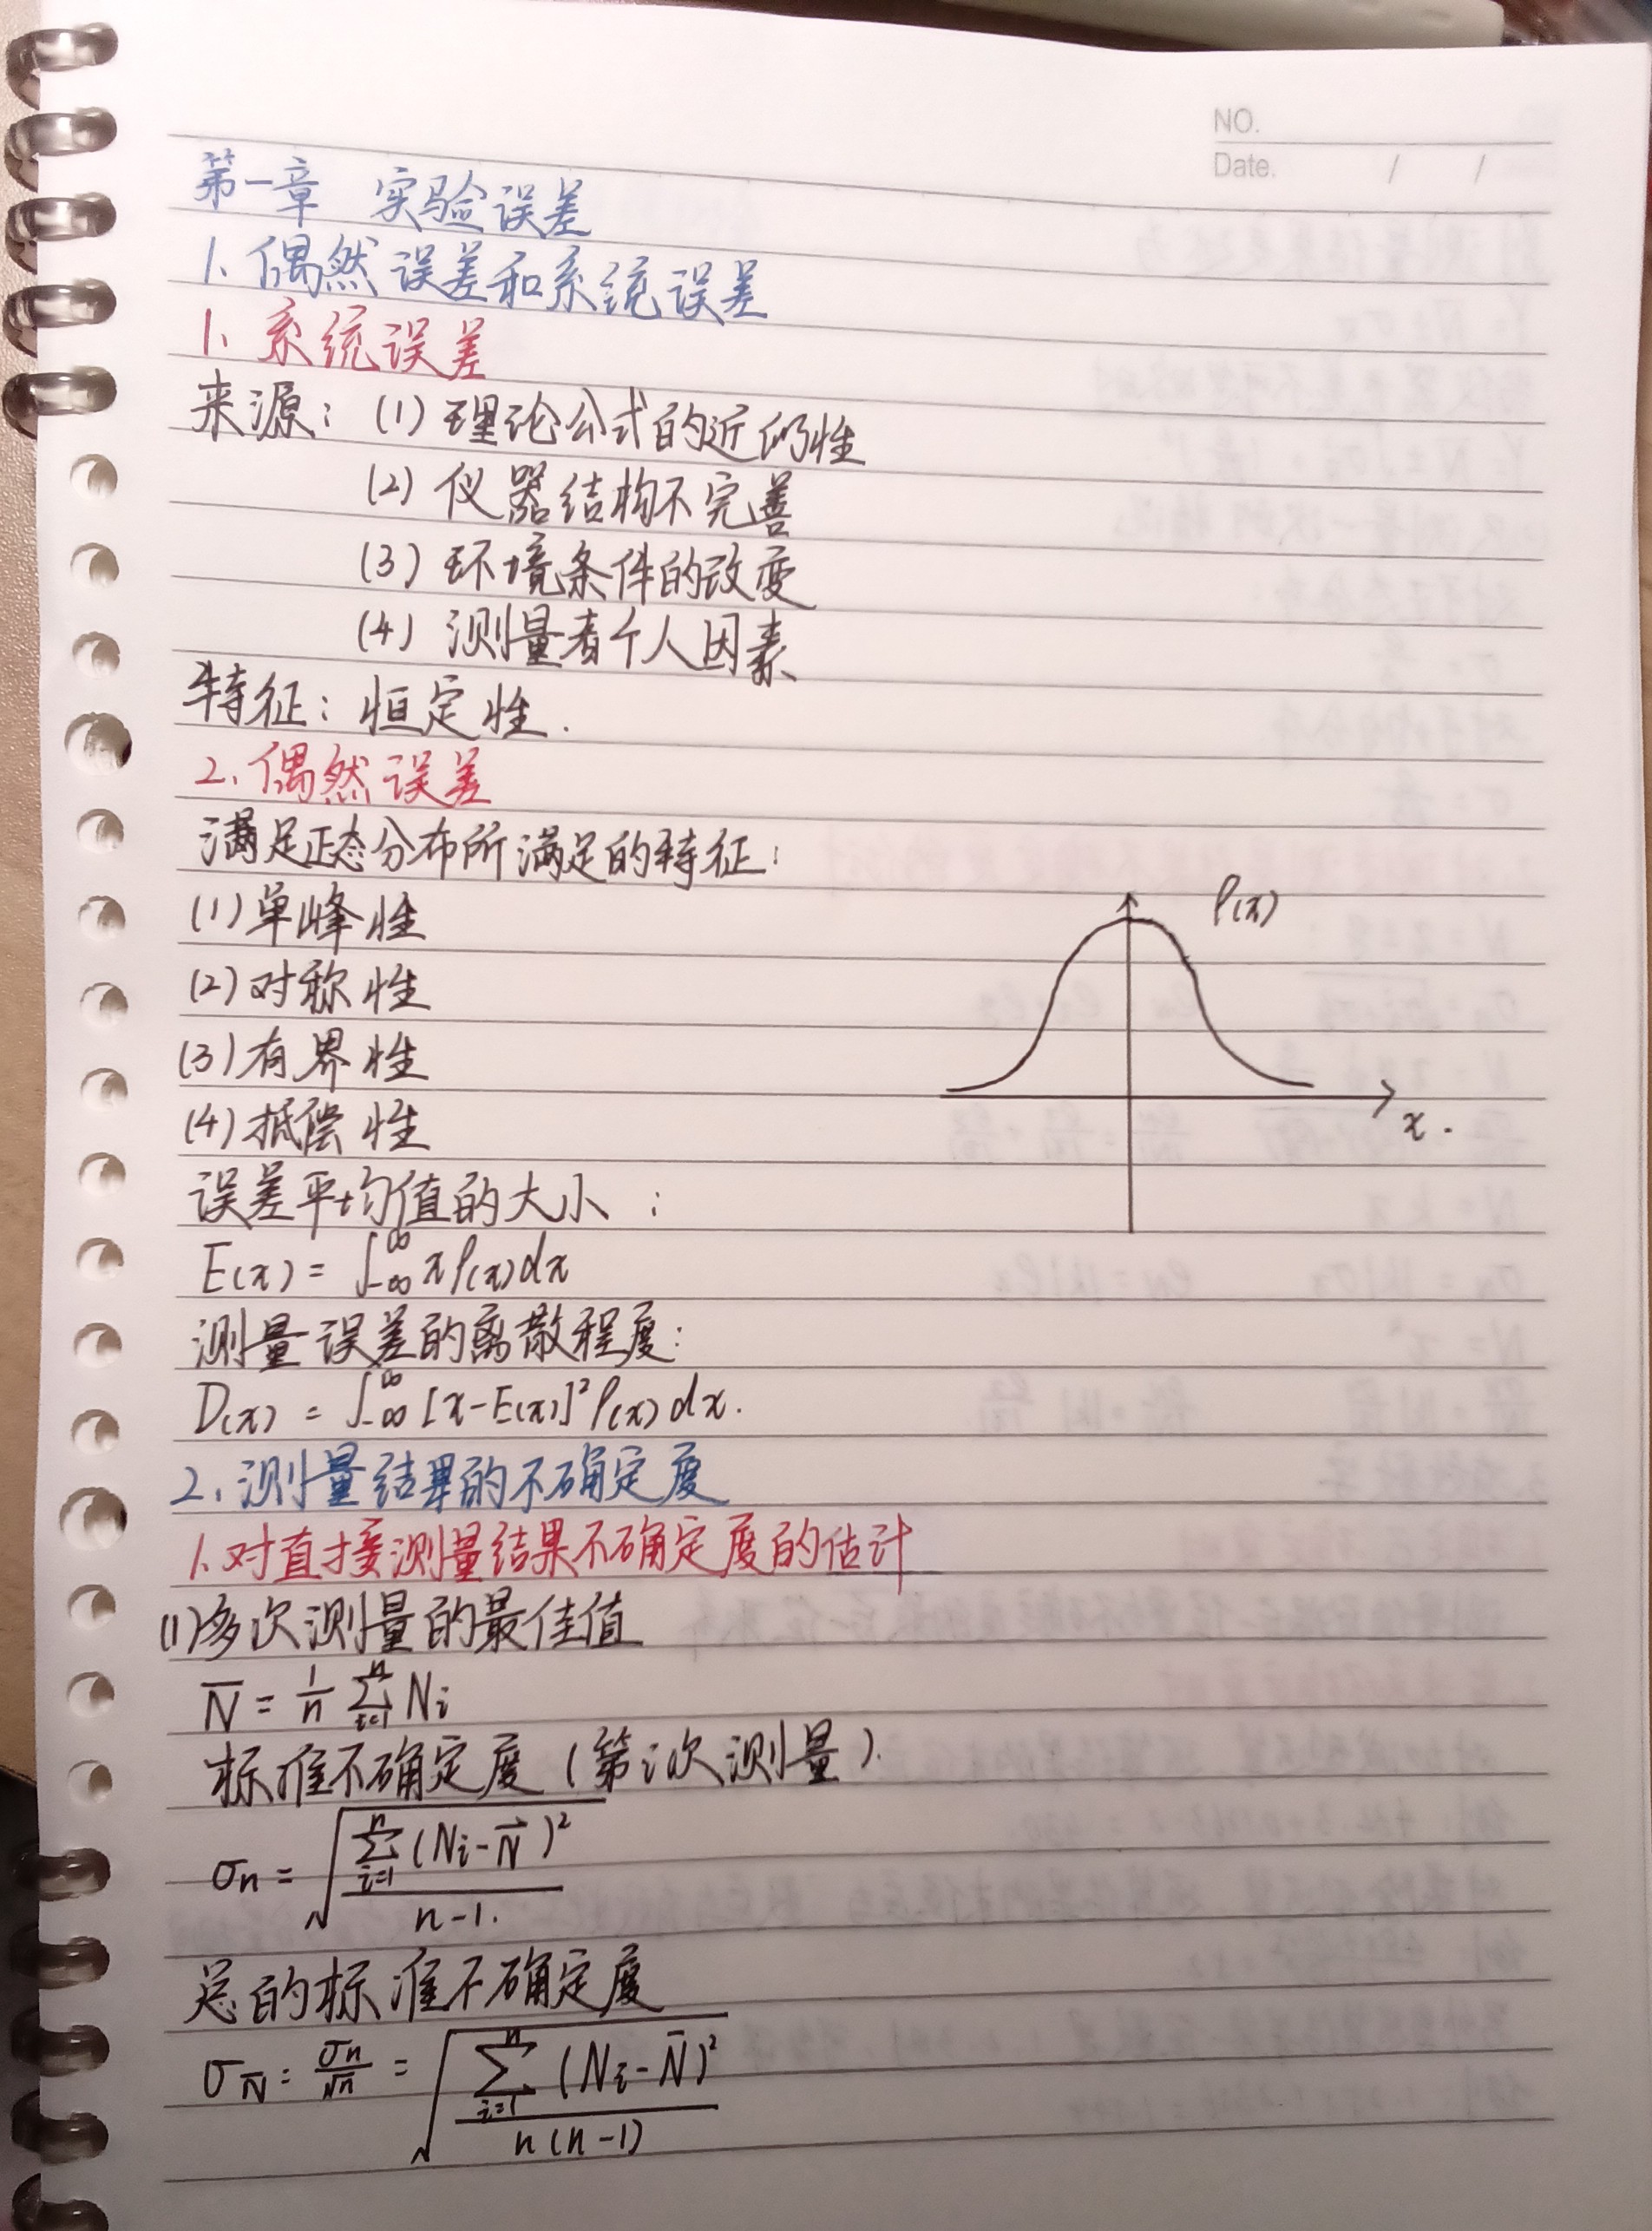 NO.
Date. / /
第一章 实验误差
1、偶然误差和系统误差
1、系统误差
来源：(1) 理论公式的近似性
(2) 仪器结构不完善
(3) 环境条件的改变
(4) 测量者个人因素
特征：恒定性.
2、偶然误差
满足正态分布所满足的特征：
(1) 单峰性
ρ(x)
(2) 对称性
(3) 有界性
(4) 抵偿性
x.
误差平均值的大小：
E(x) = ∫_{-∞}^{∞} x ρ(x) dx
测量误差的离散程度：
D(x) = ∫_{-∞}^{∞} [x-E(x)]² ρ(x) dx.
2、测量结果的不确定度
1、对直接测量结果不确定度的估计
(1) 多次测量的最佳值
N̅ = 1/n ∑_{i=1}^{n} N_i
标准不确定度 (第i次测量).
σ_n = √(∑_{i=1}^{n} (N_i - N̅)² / n-1.)
总的标准不确定度
σ_N̅ = σ_n/√n = √(∑_{i=1}^{n} (N_i - N̅)² / n(n-1))